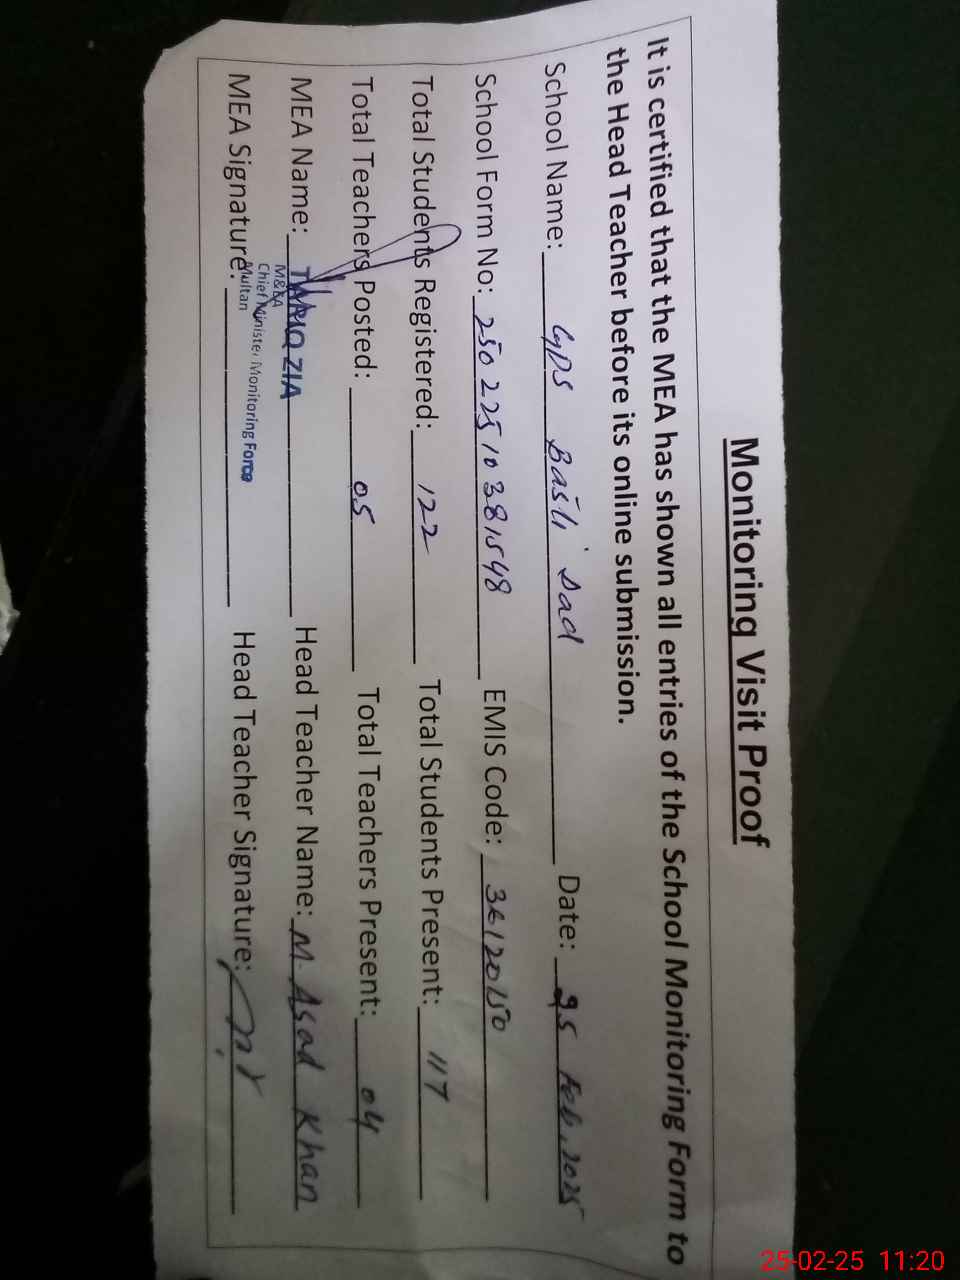 Monitoring Visit Proof
It is certified that the MEA has shown all entries of the School Monitoring Form to
the Head Teacher before its online submission.
School Name: GPS Basti Dad Date: 25 Feb, 2025
School Form No: 25022510381548 EMIS Code: 36120150
Total Students Registered: 122 Total Students Present: 117
Total Teachers Posted: 05 Total Teachers Present: 04
MEA Name: TARIQ ZIA Head Teacher Name: M. Asad Khan
M&EA
Chief Minister Monitoring Force
Multan
MEA Signature: Head Teacher Signature:
25-02-25 11:20